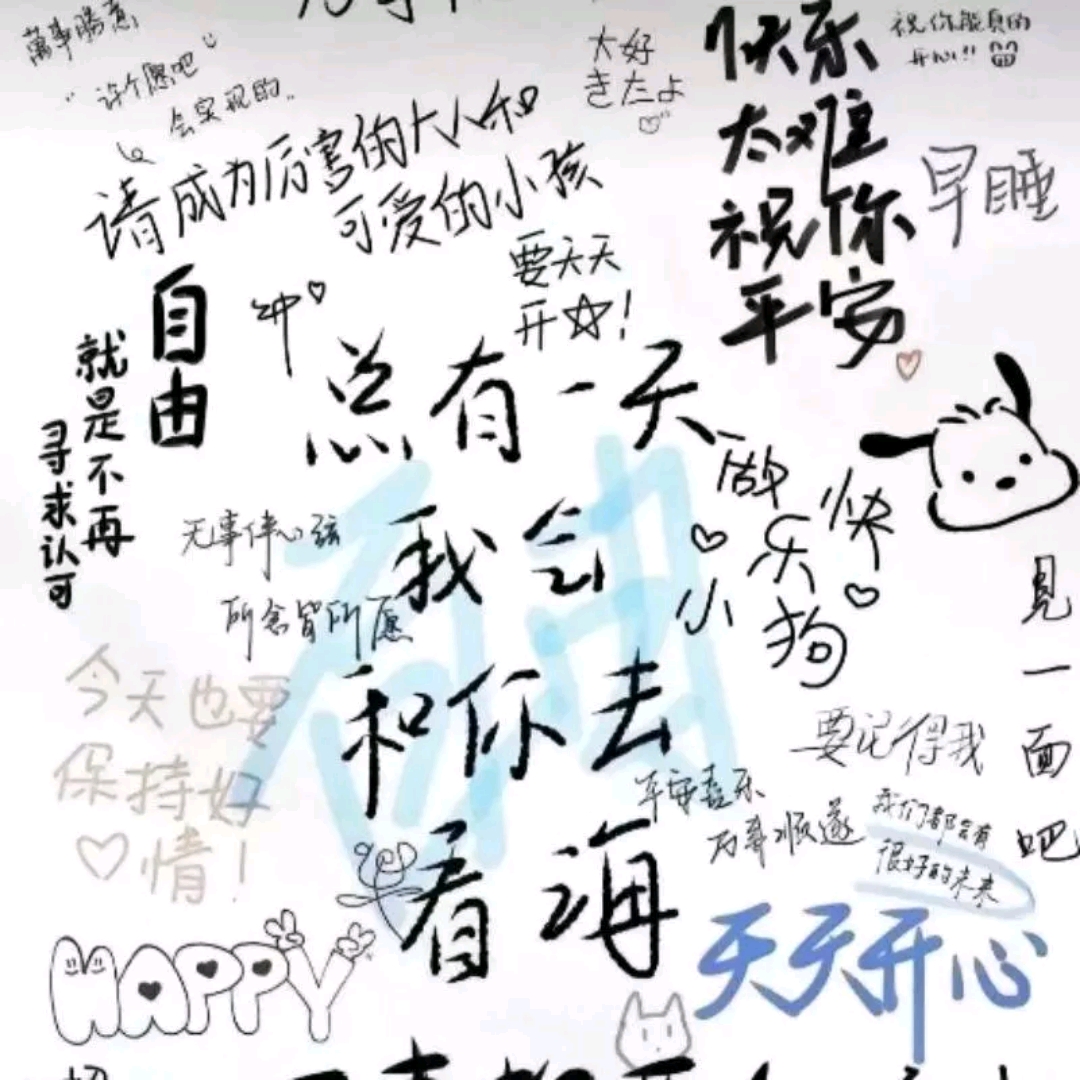 萬事勝意
许个愿吧
会实现的
请成为厉害的大人和
可爱的小孩
大好
きだよ
快乐
太难
祝你
平安
祝你能真的
开心!!
早睡
要天天
开☆!
自由
就是不再
寻求认可
冲
总有一天
我会
和你去
看海
做
快
乐
小
狗
无事绊心弦
所念皆所愿
今天也要
保持好
♡情!
见一面吧
要记得我
平安喜乐
万事顺遂
我们都会有
很好的未来
天天开心
HAPPY